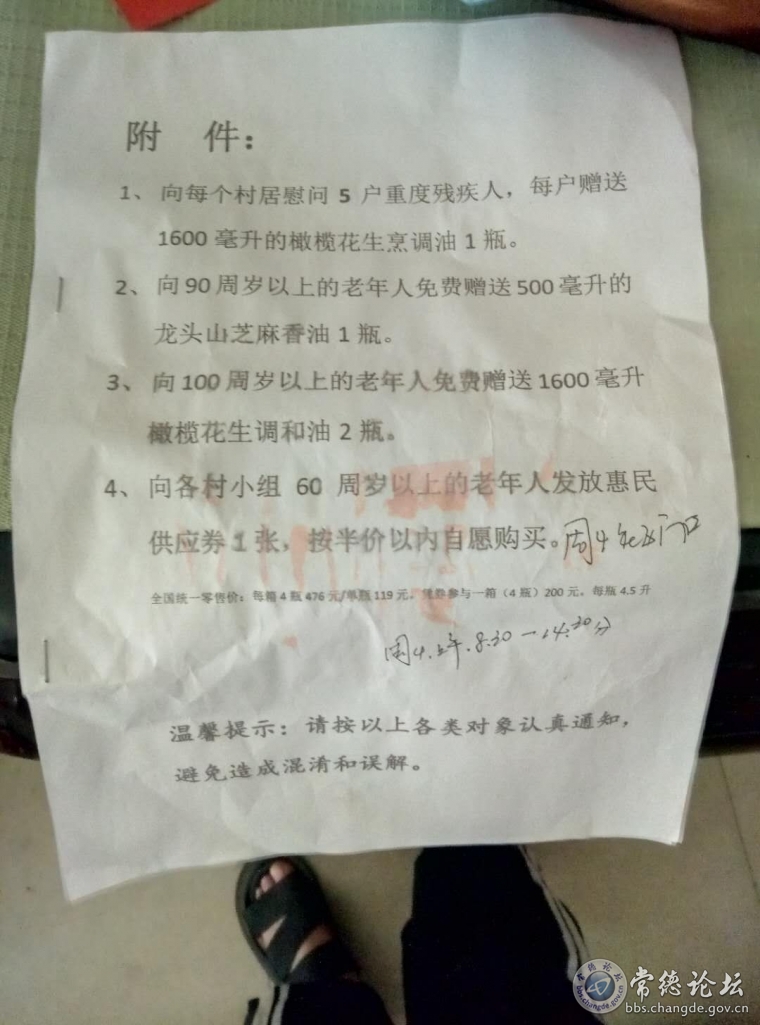 附 件：
1、向每个村居慰问 5 户重度残疾人，每户赠送
1600 毫升的橄榄花生烹调油 1 瓶。
2、向 90 周岁以上的老年人免费赠送 500 毫升的
龙头山芝麻香油 1 瓶。
3、向 100 周岁以上的老年人免费赠送 1600 毫升
橄榄花生调和油 2 瓶。
4、向各村小组 60 周岁以上的老年人发放惠民
供应券 1 张，按半价以内自愿购买。周4 门口
全国统一零售价：每箱 4 瓶 476 元/单瓶 119 元，凭券参与一箱（4 瓶）200 元，每瓶 4.5 升
周4.上午.8.30一14.30分
温馨提示：请按以上各类对象认真通知，
避免造成混淆和误解。
常德论坛
bbs.changde.gov.cn